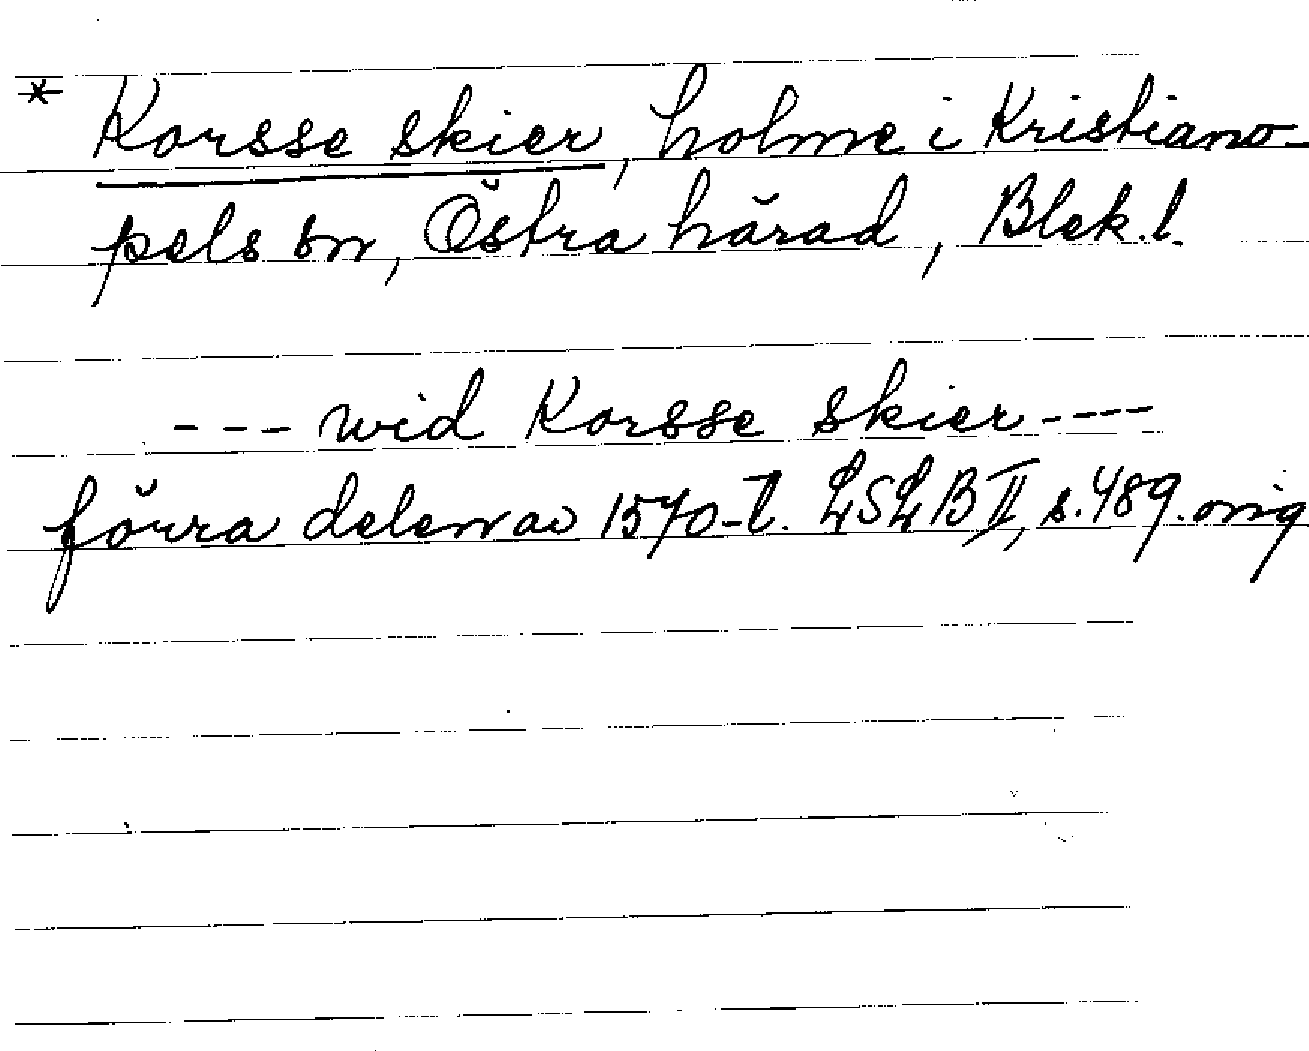 * Korsse skier, holme i Kristiano-
pels sn, Östra härad, Blek. l.
--- wid Korsse skier ----
förra delen av 1570-t. LSLB II, s. 489. orig